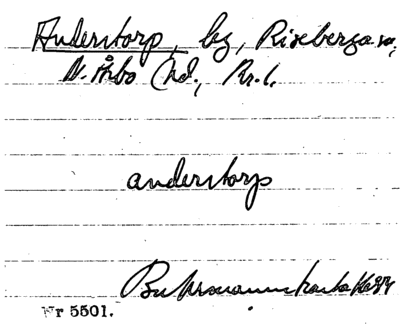 Anderstorp, by, Riseberga sn,
N. Åsbo hd., Kr. l.
anderstorp
Buhrmanns karta
Nr 5501.